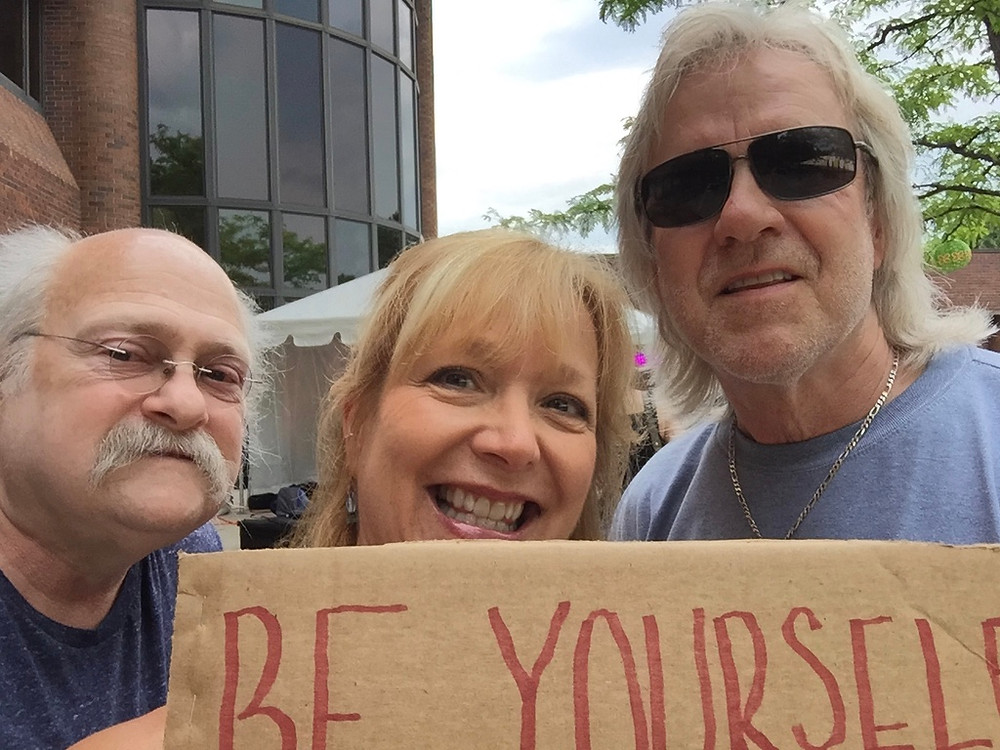 BE YOURSELF